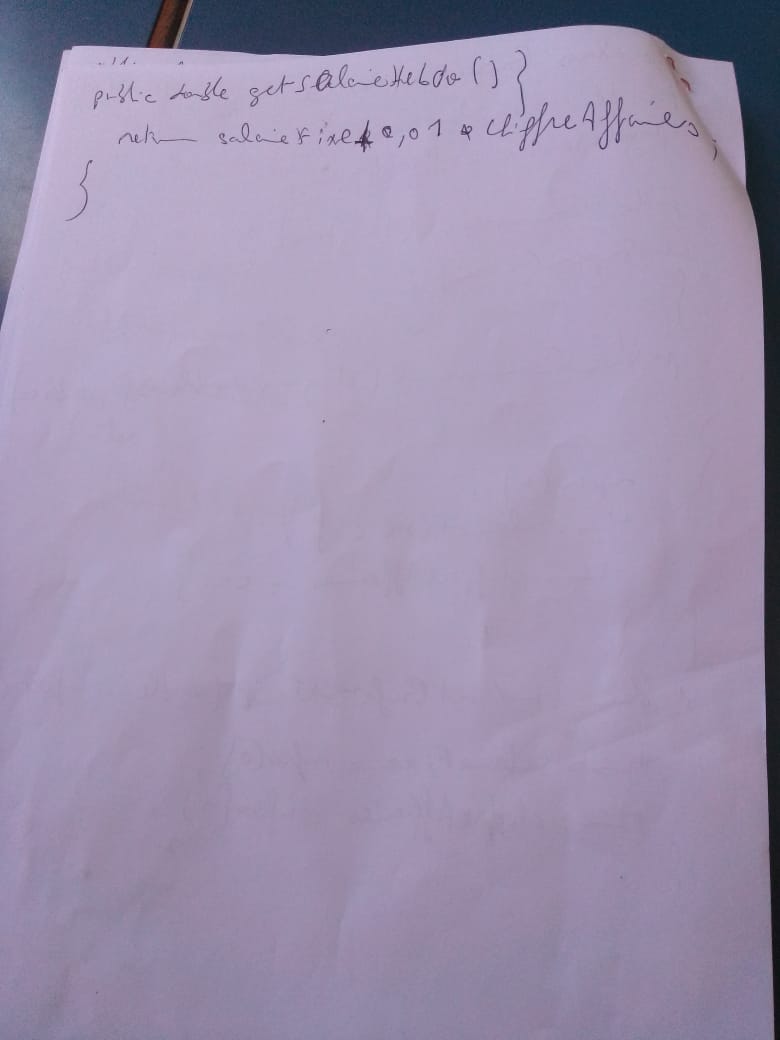 public double getSalaireHebdo() }
return salaireFixe + 0,01 * chiffreAffaires;
{